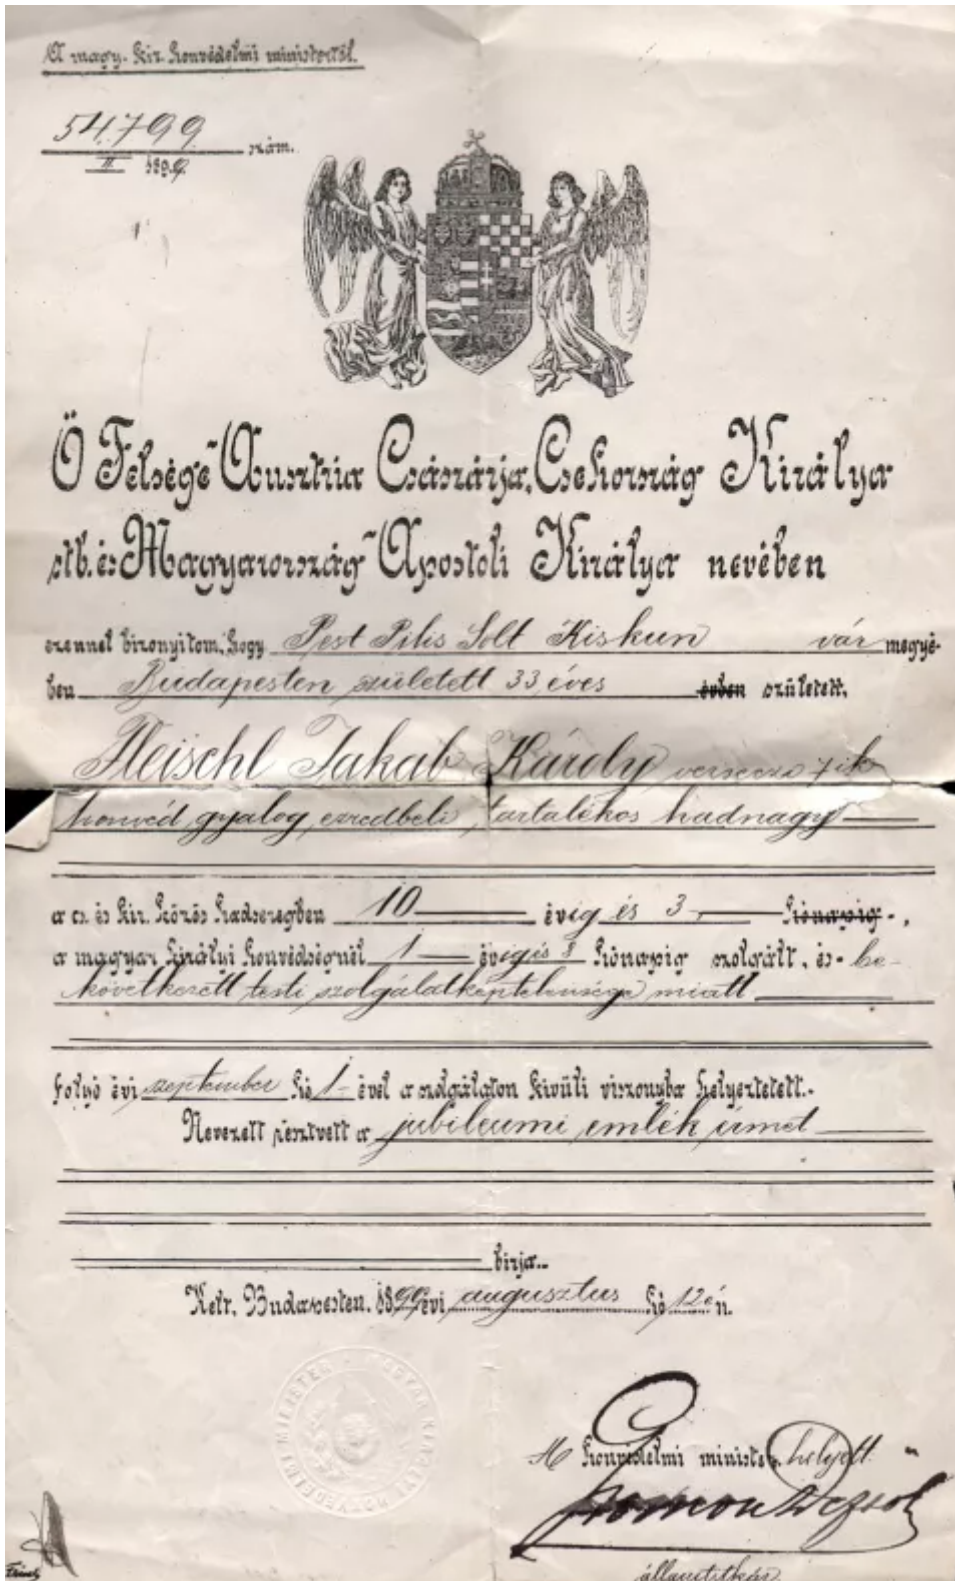 A magy. kir. honvédelmi ministertől.
54799 szám.
II. 1899.
Ő Felsége Ausztria Császárja, Csehország Királya
stb. és Magyarország Apostoli Királya nevében
ezennel bizonyitom, hogy Pest Pilis Solt Kiskun vár megyé-
ben Budapesten született 33 éves évben született,
Fleischl Jakab Károly verseczi 7ik
honvéd gyalog ezredbeli tartalékos hadnagy
a cs. és kir. közös hadseregben 10 évig és 3 hónapig,
a magyar királyi honvédségnél 1 évig és 8 hónapig szolgált, és be-
következett testi szolgálatképtelensége miatt
folyó évi szeptember hó 1-ével a szolgálaton kivüli viszonyba helyeztetett.
Nevezett résztvett a jubileumi emlék érmet
birja.
Kelt, Budapesten, 1899 évi augusztus hó 12én.
MAGYAR KIRÁLYI HONVÉDELMI MINISTER
A honvédelmi minister helyett
államtitkár